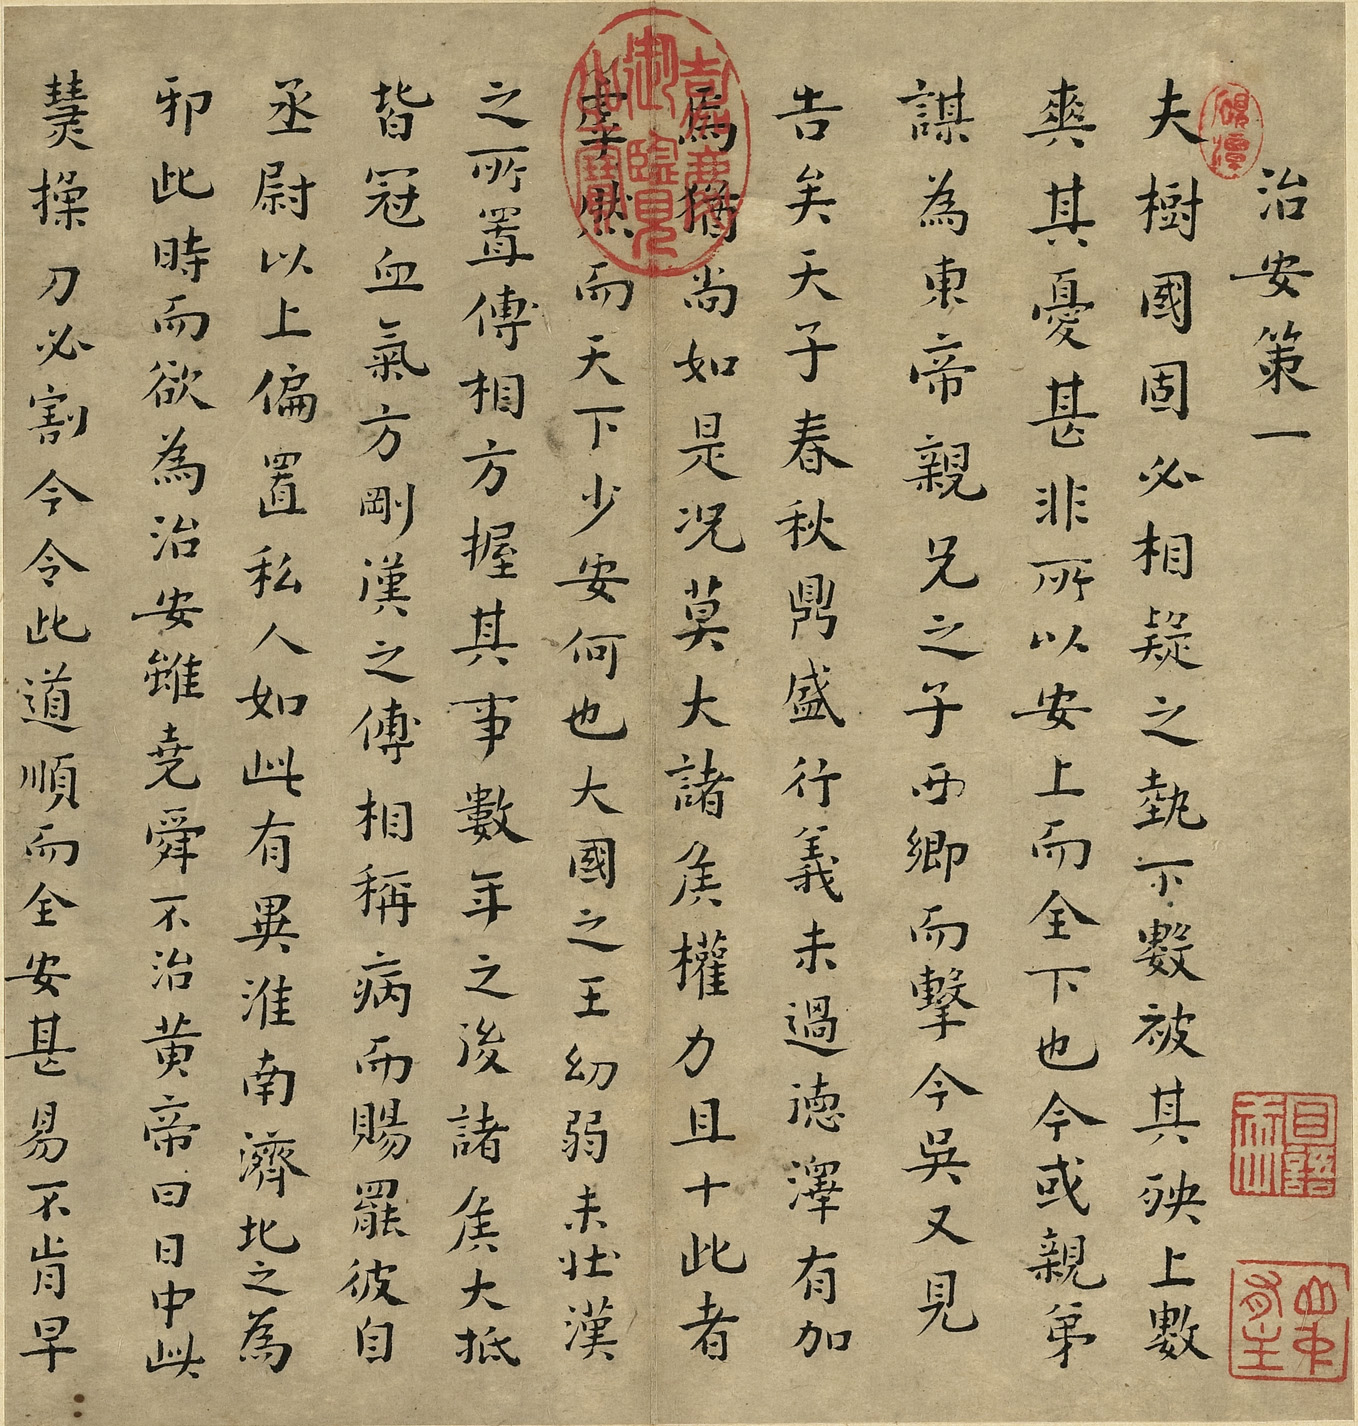 治安策一
夫樹國固必相疑之埶不數被其殃上數
爽其憂甚非所以安上而全下也今或親弟
謀為東帝親兄之子西鄉而擊今吳又見
告矣天子春秋鼎盛行義未過德澤有加
焉猶尚如是況莫大諸侯權力且十此者
虖然而天下少安何也大國之王幼弱未壯漢
之所置傅相方握其事數年之後諸侯大抵
皆冠血氣方剛漢之傅相稱病而賜罷彼自
丞尉以上偏置私人如此有異淮南濟北之為
邪此時而欲為治安雖堯舜不治黃帝曰日中此
慧操刀必割今令此道順而全安甚易不肯早
嘉慶御覽之寶